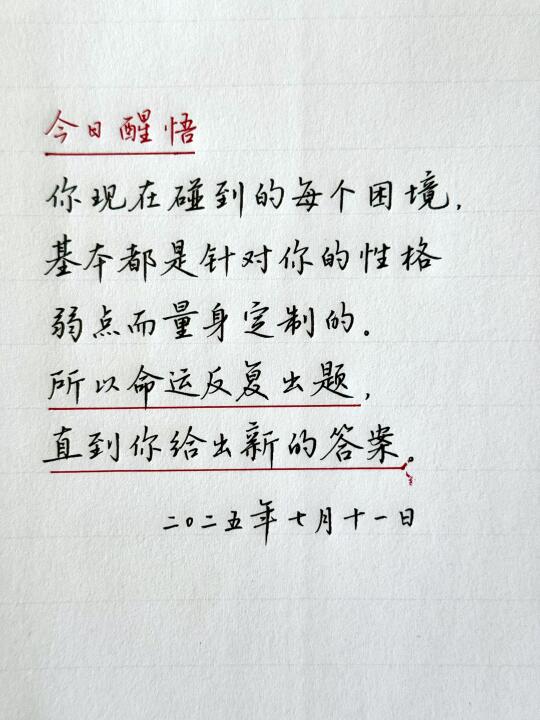 今日醒悟
你现在碰到的每个困境,
基本都是针对你的性格
弱点而量身定制的。
所以命运反复出题,
直到你给出新的答案。
二〇二五年七月十一日